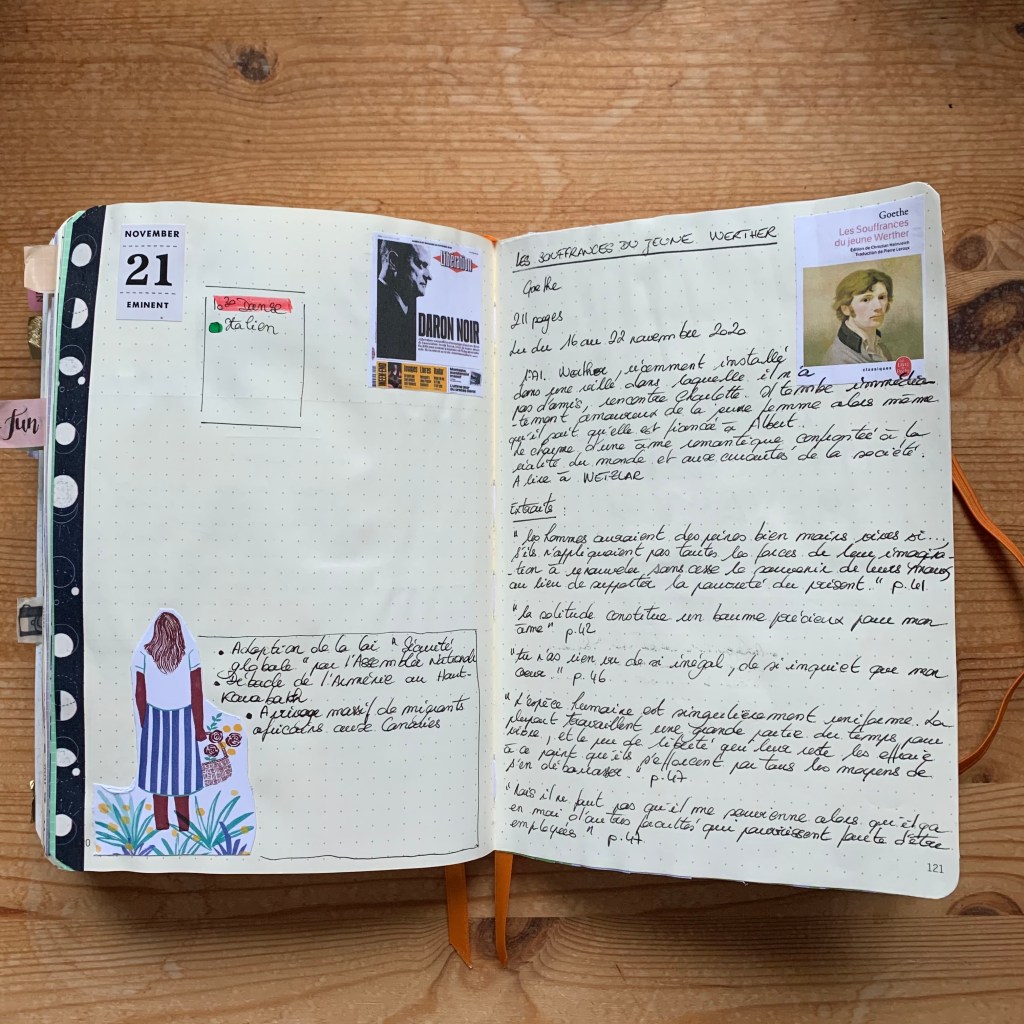 NOVEMBER
21
EMINENT
10 30 Danse
Italien
Libération
DARON NOIR
WEEK-END
Images Livres
Fun
• Adoption de la loi "Sécurité
globale" par l'Assemblée Nationale
• Débacle de l'Arménie au Haut-
Karabakh
• Arrivage massif de migrants
africains aux Canaries
LES SOUFFRANCES DU JEUNE WERTHER
Goethe
211 pages
Lu du 16 au 22 novembre 2020
Werther, récemment installé
dans une ville dans laquelle il n'a
pas d'amis, rencontre Charlotte. Il tombe immédia-
-tement amoureux de la jeune femme alors même
qu'il sait qu'elle est fiancée à Albert..
Le charme d'une âme romantique confrontée à la
réalité du monde et aux cruautés de la société.
A lire à WETZLAR
Goethe
Les Souffrances
du jeune Werther
Édition de Christian Helmreich
Traduction de Pierre Leroux
classiques
Extraits :
"les hommes auraient des peines bien moins vives si...
s'ils n'appliquaient pas toutes les forces de leur imagina-
-tion à renouveler sans cesse le souvenir de leurs maux,
au lieu de supporter la pauvreté du présent." p.41
"la solitude constitue un baume précieux pour mon
âme" p.42
"tu n'as rien vu de si inégal, de si inquiet que mon
cœur." p.46
"L'espèce humaine est singulièrement uniforme. La
plupart travaillent une grande partie du temps pour
vivre, et le peu de liberté qui leur reste les effraie
à ce point qu'ils s'efforcent par tous les moyens de
s'en débarrasser." p.47
"Mais il ne faut pas qu'il me souvienne alors qu'il y a
en moi d'autres facultés qui pourrissent faute d'être
employées" p.47
121